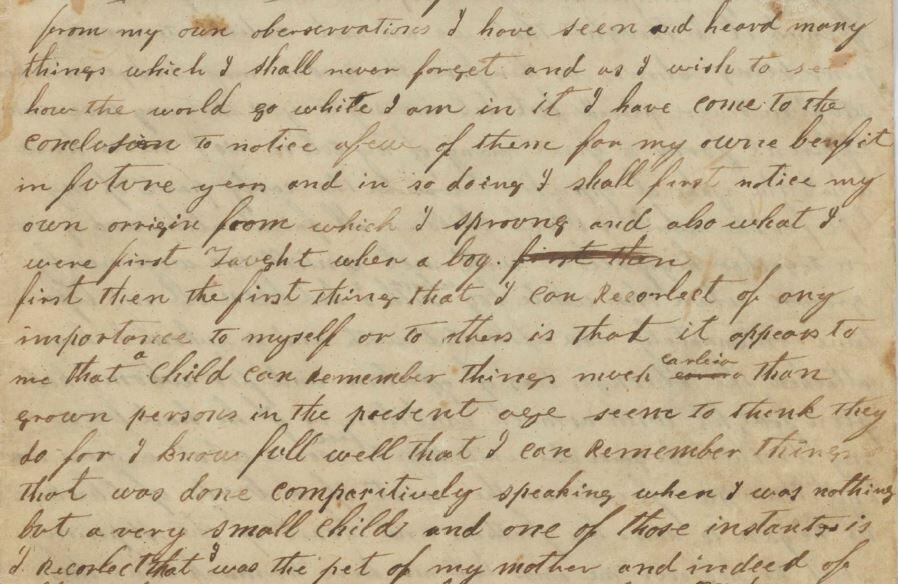 from my own oberservations I have seen and heard many
things which I shall never forget and as I wish to se
how the world go while I am in it I have come to the
conclusion to notice afew of them for my owne benfit
in future years and in so doing I shall first notice my
own orrigin from which I sproung and also what I
were first Taught when a boy. first then
first then the first thing that I can Recorlect of any
importance to myself or to others is that it appears to
me that a Child can Remember things much earleir than
grown persons in the present age seem to think they
do for I know full well that I can Remember things
that was done comparitively speaking when I was nothing
but a very small Child and one of those instants is
I Recorlect that I was the pet of my mother and indeed of